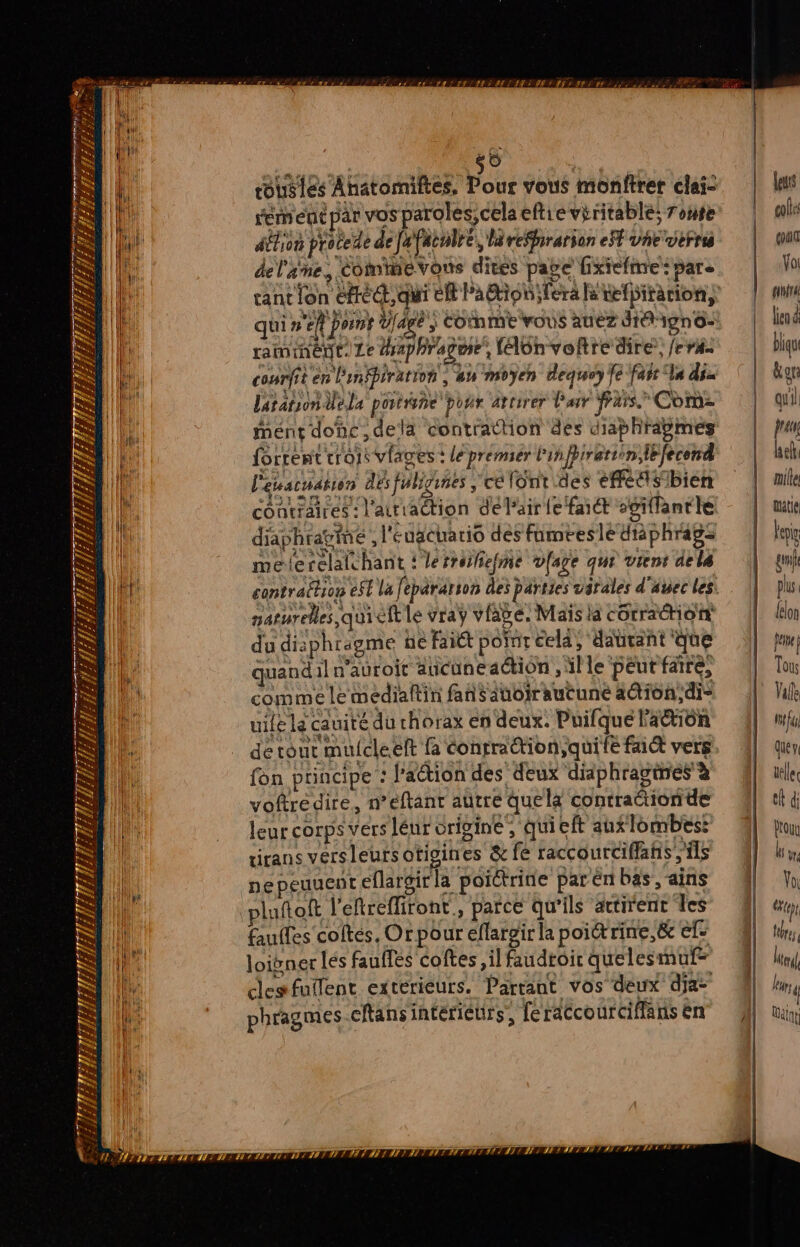 50
tous les Anatomistes. Pour vous monstrer clai-
rement par vos paroles, cela estre veritable; Toute
action procede de sa faculté, la respiration est vne vertu
de l'ame, comme vous dites page sixiesme: par-
tant son effect, qui est l'action, sera la respiration,
qui n'est point vsage, comme vous auez dit igno-
ramment. Le diaphragme, selon vostre dire, se ra-
courſit en l'inspiration, au moyen dequoy se fait la di-
latation de la poitrine pour attirer l'air frais. Com-
ment donc, de la contraction des diaphragmes
sortent trois vsages: le premier l'inspiration, le second
l'euacuation des fuligines, ce sont des effects bien
contraires: l'attraction de l'air se faict agissant le
diaphragme, l'euacuatiõ des fumees le diaphrag-
me se relaschant: le troisiesme vsage qui vient de la
contraction est la separation des parties vitales d'auec les
naturelles, qui est le vray vsage. Mais la cõtraction
du diaphragme ne faict point cela, dautant que
quand il n'auroit aucune action, il le peut faire,
comme le mediastin sans auoir aucune action, di-
uise la cauité du thorax en deux. Puisque l'action
de tout muscle est sa contraction, qui se faict vers
son principe: l'action des deux diaphragmes à
vostre dire, n'estant autre que la contraction de
leur corps vers leur origine, qui est aux lombes:
tirans vers leurs origines & se raccourcissans, ils
ne peuuent eslargir la poictrine par en bas, ains
plustost l'estressiront, parce qu'ils attirent les
fausses costes. Or pour eslargir la poictrine, & es-
loigner les fausses costes, il faudroit que les mus-
cles fussent exterieurs. Partant vos deux dia-
phragmes estans interieurs, se raccourcissans en